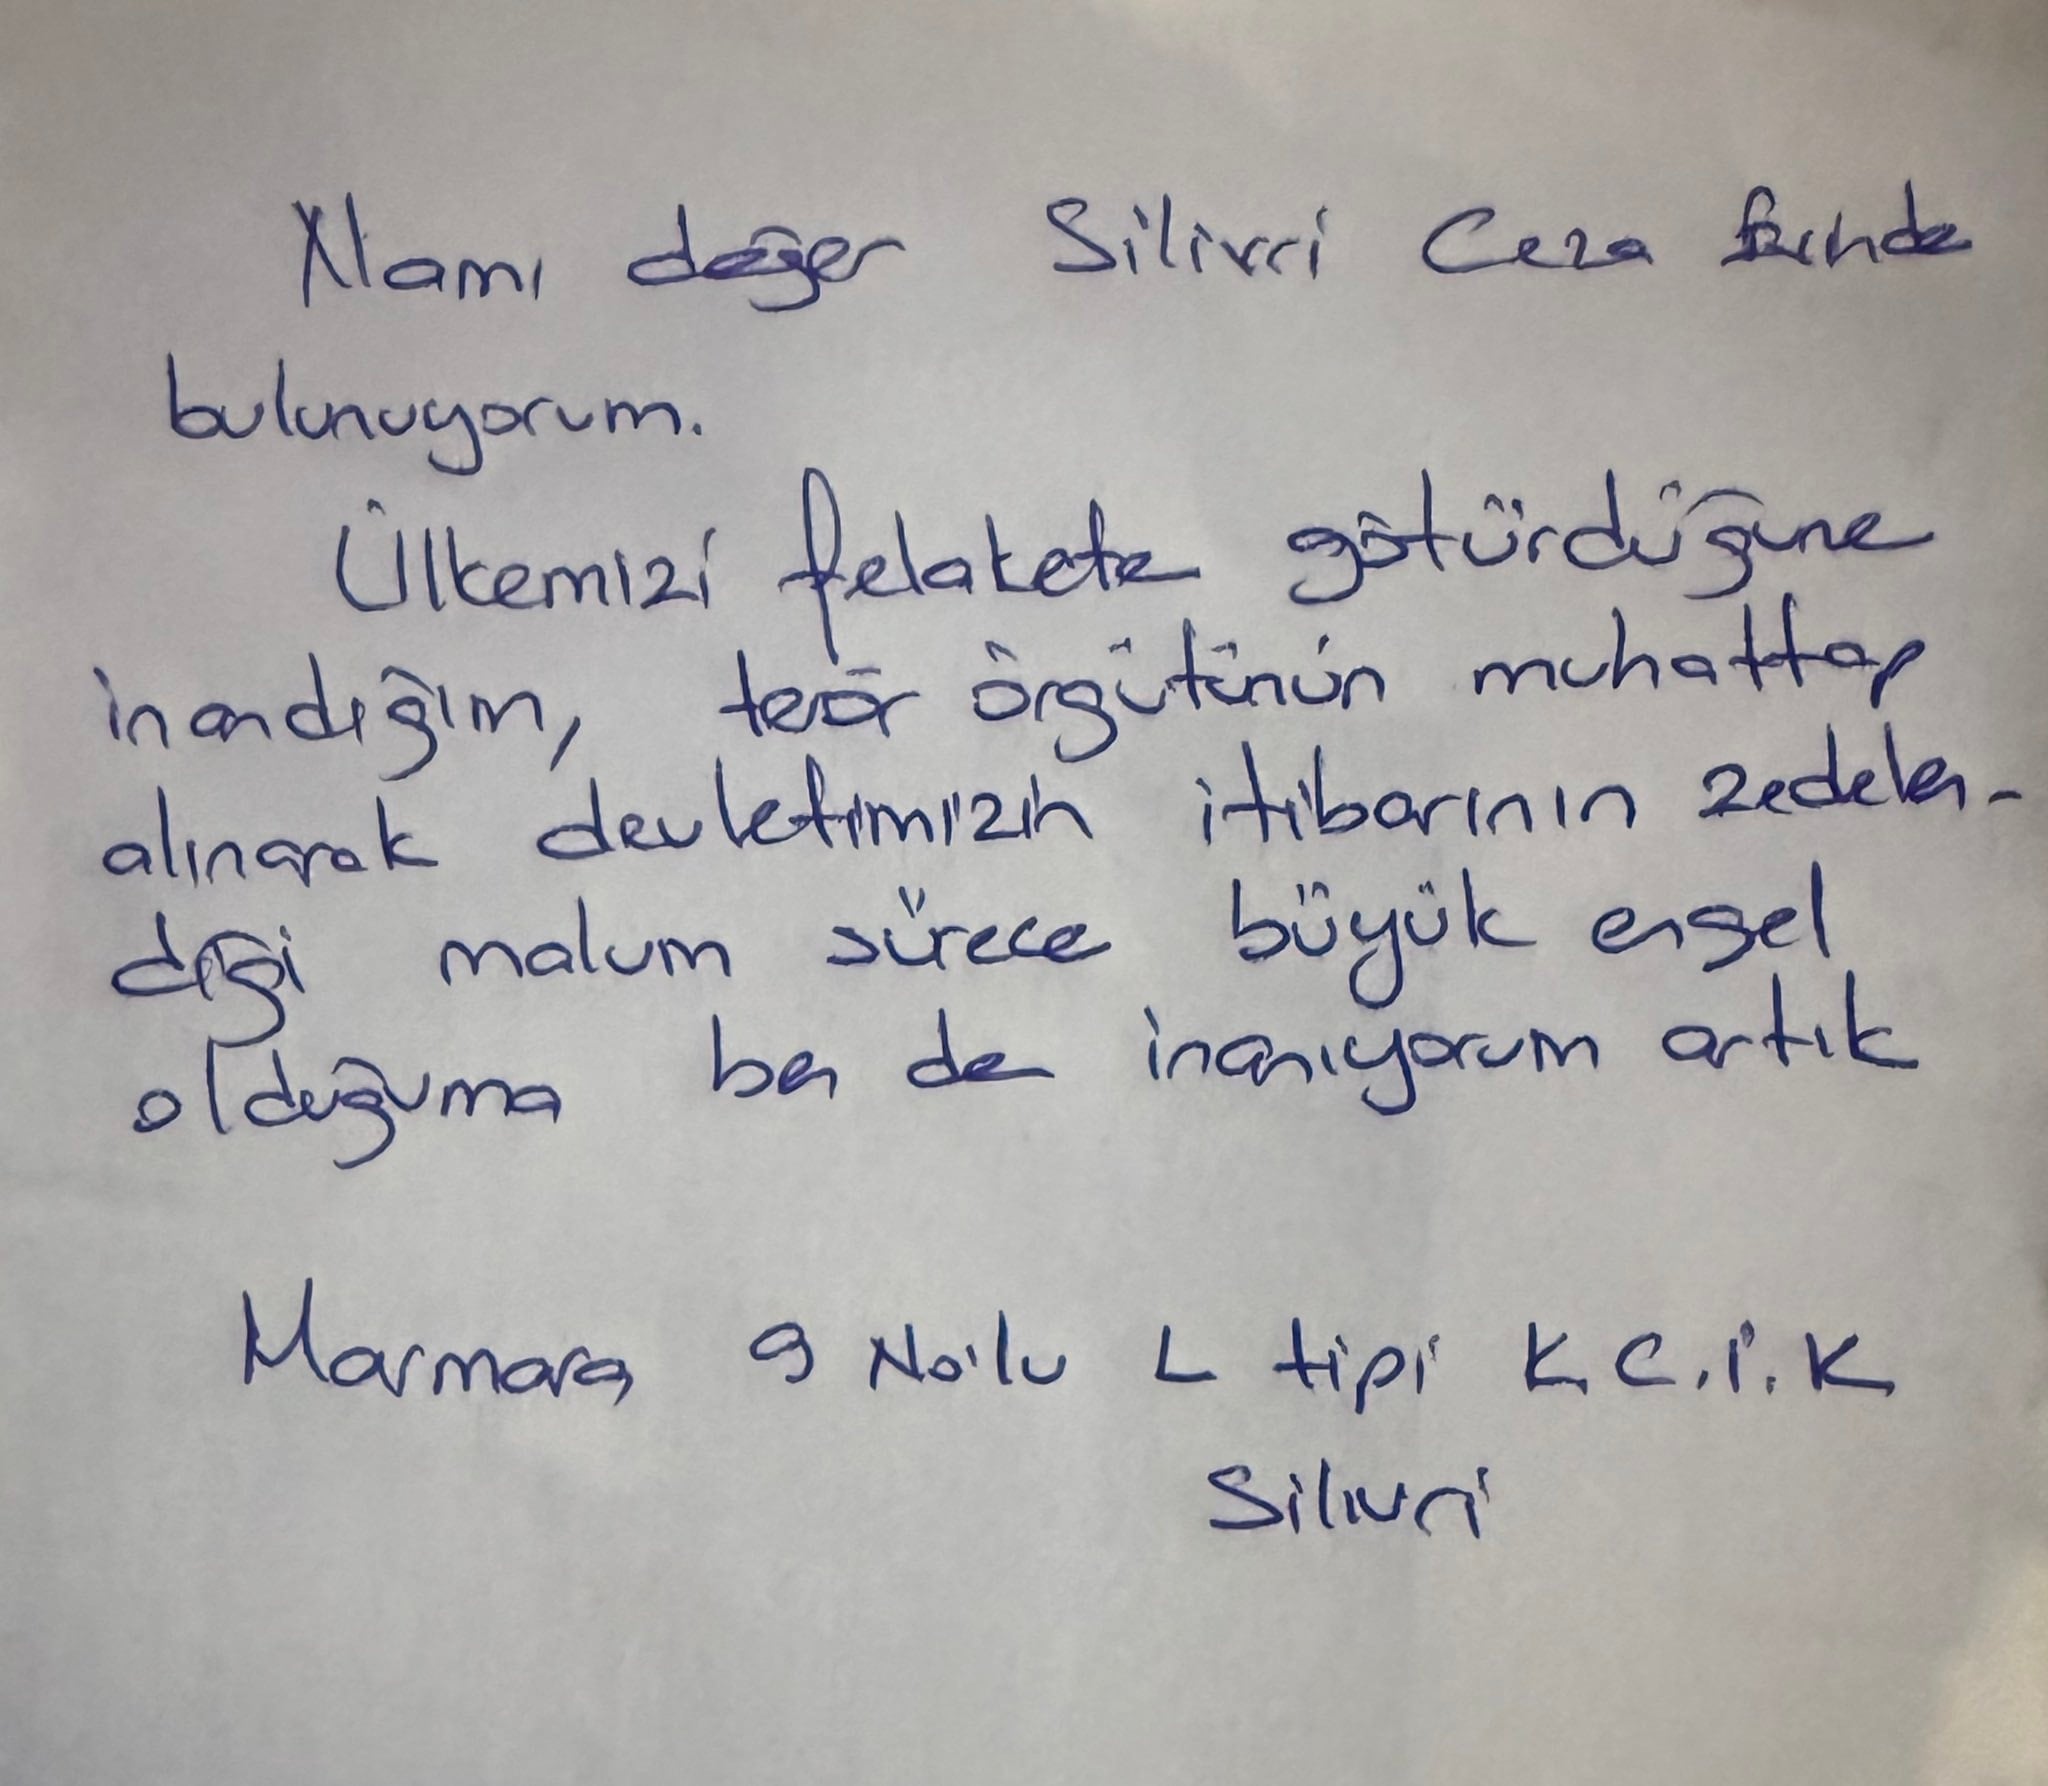 Namı değer Silivri Ceza Evinde
bulunuyorum.
Ülkemizi felakete götürdüğüne
inandığım, terör örgütünün muhattap
alınarak devletimizin itibarının zedelen-
diği malum sürece büyük engel
olduğuma ben de inanıyorum artık
Marmara 9 No'lu L tipi K.C.İ.K
Silivri